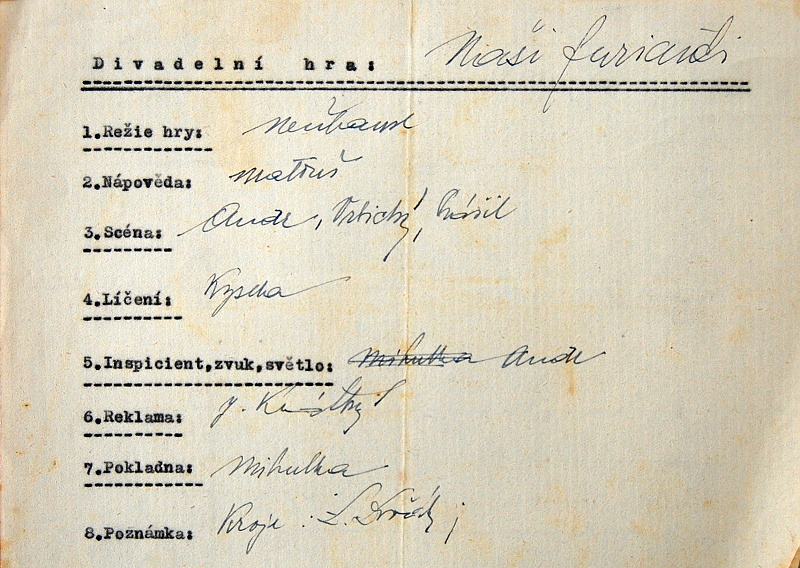 Divadelní hra: Naši furianti
1.Režie hry: Neúbauer
2.Nápověda: Matouš
3.Scéna: Andr, Vrbický, Prášil
4.Líčení: Kysela
5.Inspicient,zvuk,světlo: Mihulka Andr
6.Reklama: J. Krátký
7.Pokladna: Mihulka
8.Poznámka: Kroje : L.